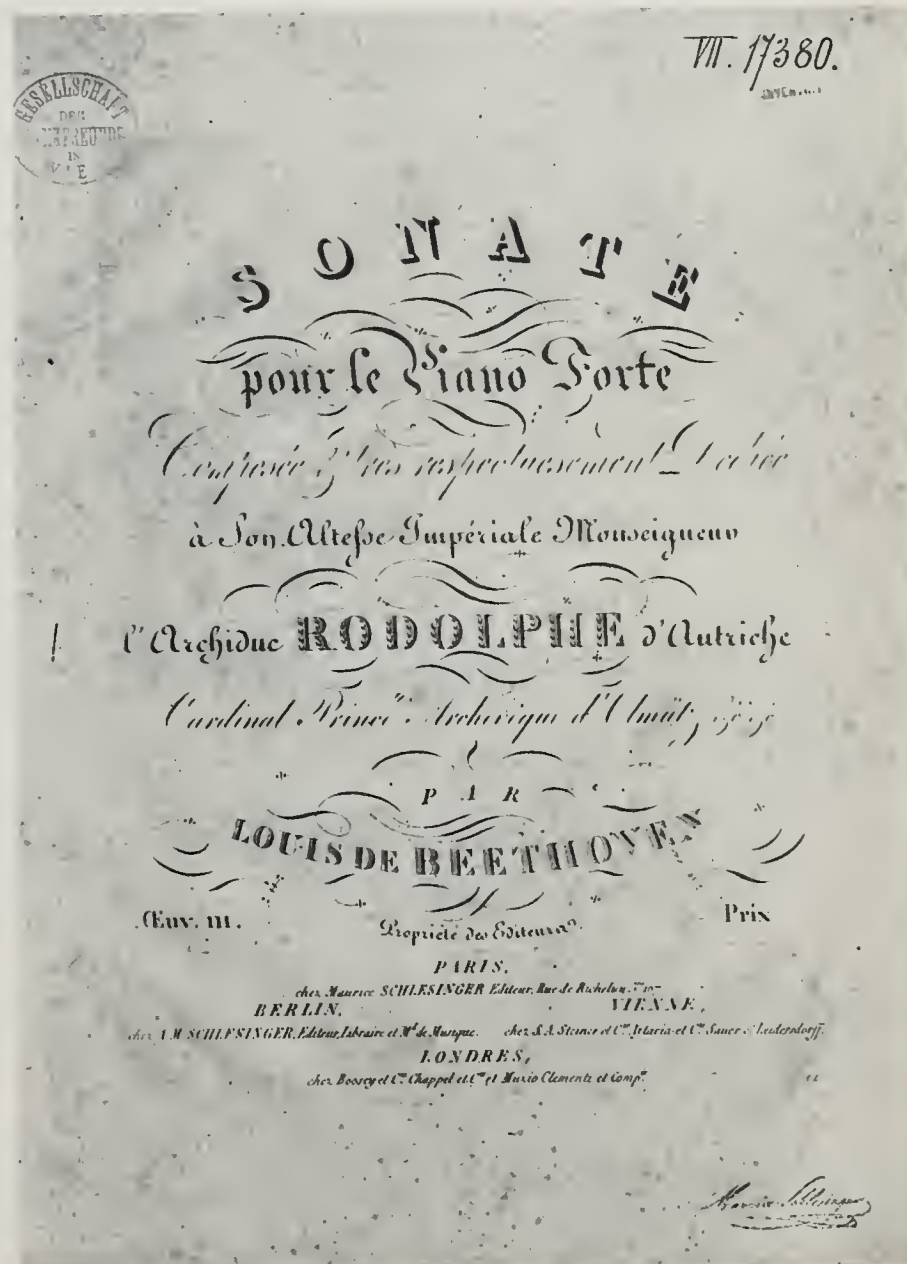 VII. 17380.
GESELLSCHAFT
DER
IN
SONATE
pour le Piano Forte
Composée & très respectueusement Dediée
à Son Altesse Impériale Monseigneur
l'Archiduc RODOLPHE d'Autriche
Cardinal Prince Archevêque d'Olmütz
PAR
LOUIS DE BEETHOVEN
Œuv. 111.
Prix
Propriété des Editeurs.
PARIS,
chez Maurice SCHLESINGER Editeur, Rue de Richelieu
BERLIN,
VIENNE,
chez A. M. SCHLESINGER, Editeur, Libraire et Md. de Musique.
chez S. A. Steiner et Cie, Artaria et Cie, Sauer et Leidersdorff.
LONDRES,
chez Boosey et Cie Chappel et Cie et Muzio Clementi et Compe.
Maurice Schlesinger